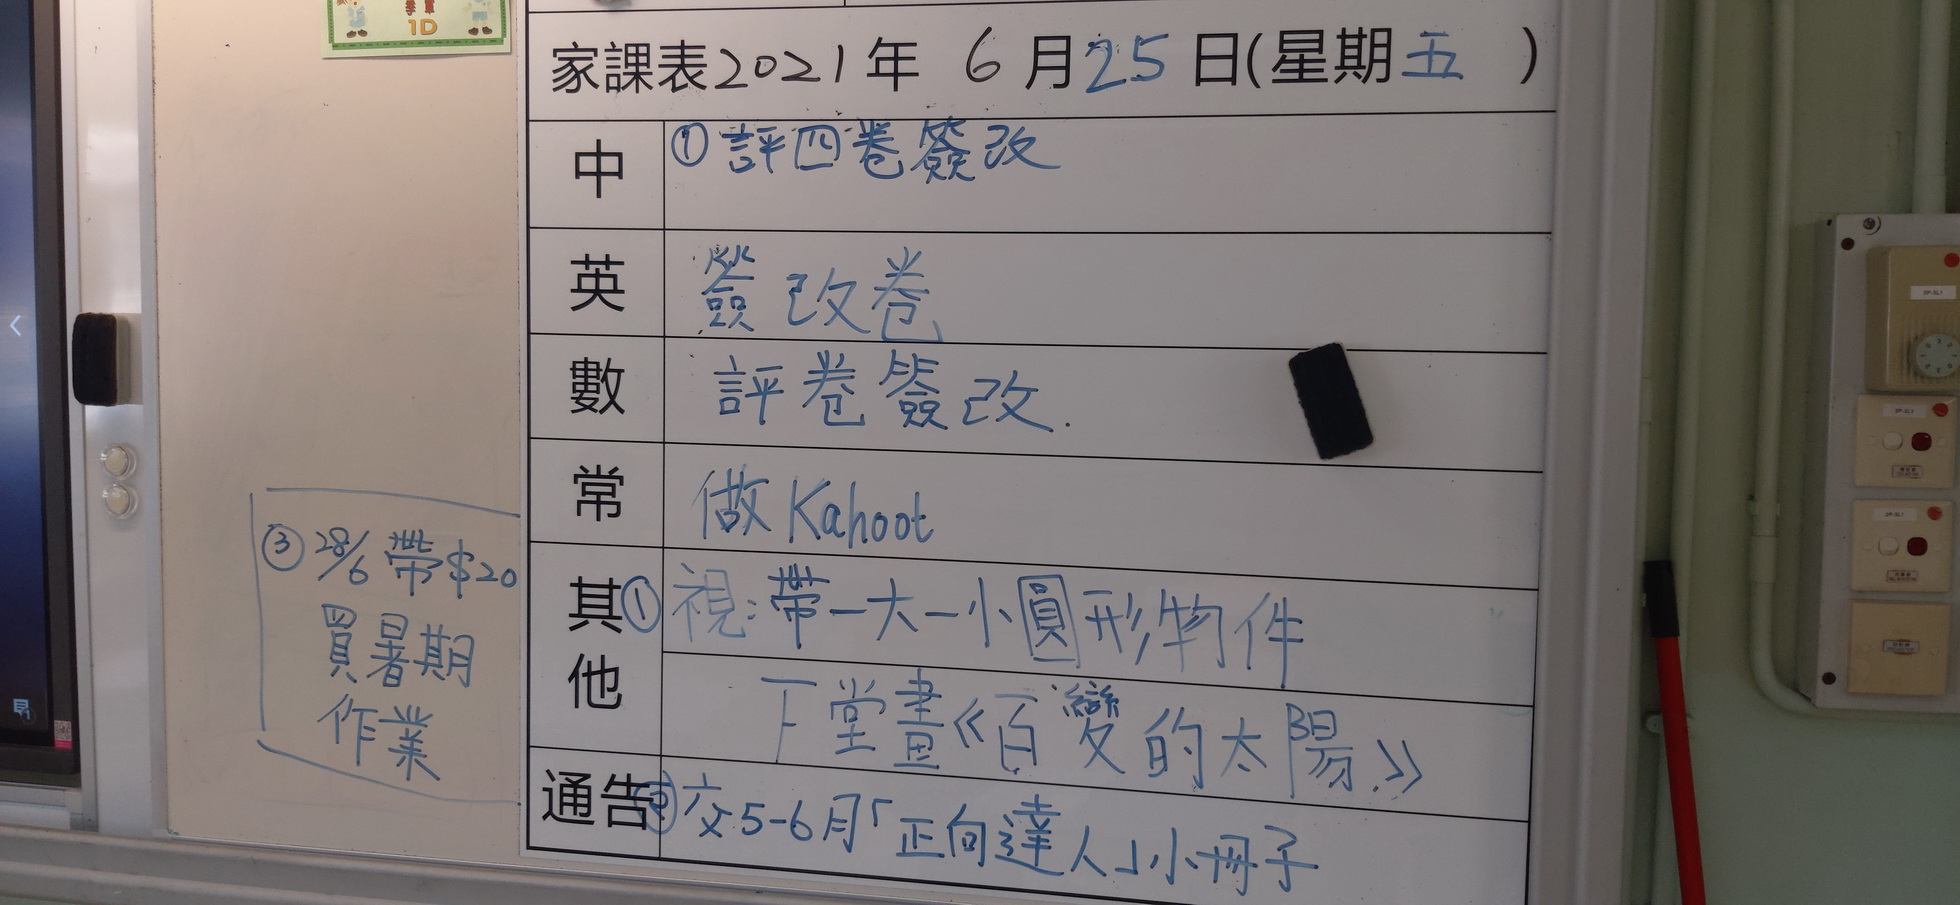 1D
家課表2021年 6月25日(星期五 )
中 ①評四卷簽改
英 簽改卷
數 評卷簽改.
常 做Kahoot
其他 ①視:帶一大一小圓形物件
下堂畫《百變的太陽》
通告 ②交5-6月「正向達人」小冊子
③28/6帶$20
買暑期
作業